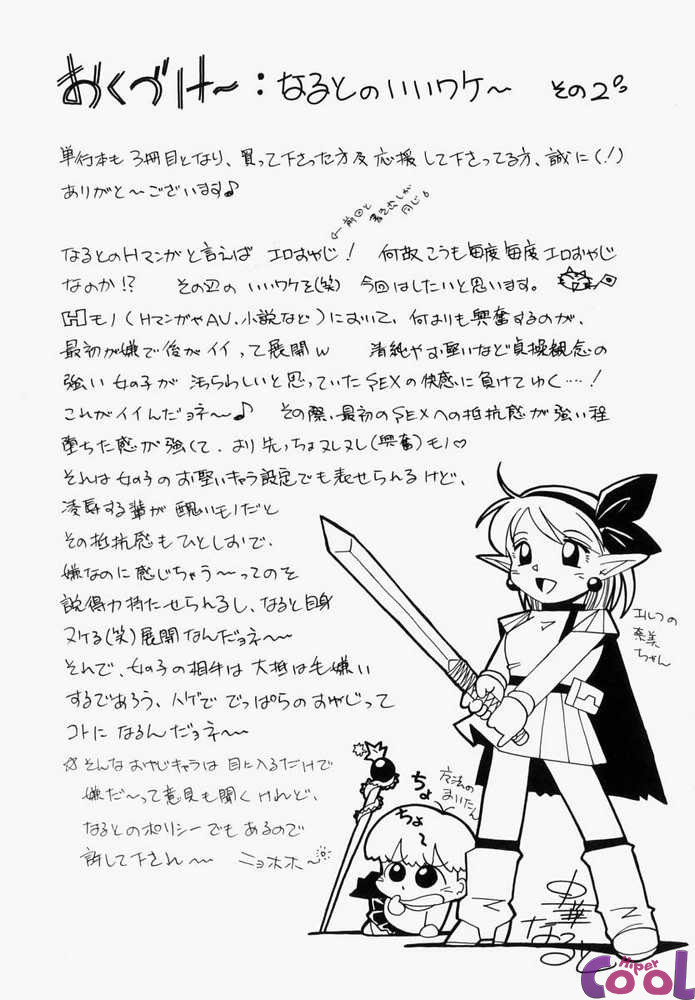 おくづけ〜：なるとのいいワケ〜 その2
単行本も3冊目となり、買って下さった方及応援して下さってる方、誠に(！)
ありがと〜ございます♪
←前回と書き出しが同じ
なるとのHマンガと言えば エロおやじ！ 何故こうも毎度毎度エロおやじ
なのか!? その辺のいいワケを(笑) 今回はしたいと思います。
Hモノ(HマンガやAV、小説など)において、何よりも興奮するのが、
最初が嫌で後がイイって展開w 清純やお堅いなど貞操観念の
強い女の子が 汚らわしいと思っていたSEXの快感に負けてゆく…！
これがイイんだョネ〜♪ その際、最初のSEXへの抵抗感が強い程
堕ちた感が強くて、より先っちょヌレヌレ(興奮)モノ♡
それは女の子のお堅いキャラ設定でも表せられるけど、
凌辱する輩が醜いモノだと
その抵抗感もひとしおで、
嫌なのに感じちゃう〜ってのを
説得力持たせられるし、なると自身
ヌケる(笑)展開なんだョネ〜
それで、女の子の相手は大抵は毛嫌い
するであろう、ハゲででっぱらのおやじって
コトになるんだョネ〜
☆そんなおやじキャラは目に入るだけで
嫌だ〜って意見も聞くけれど、
なるとのポリシーでもあるので
許して下され〜 ニョホホ〜
エルフの
奈美
ちゃん
魔法の
まいたん
ちょ
ちょ〜
中華
なると
Hiper
CooL